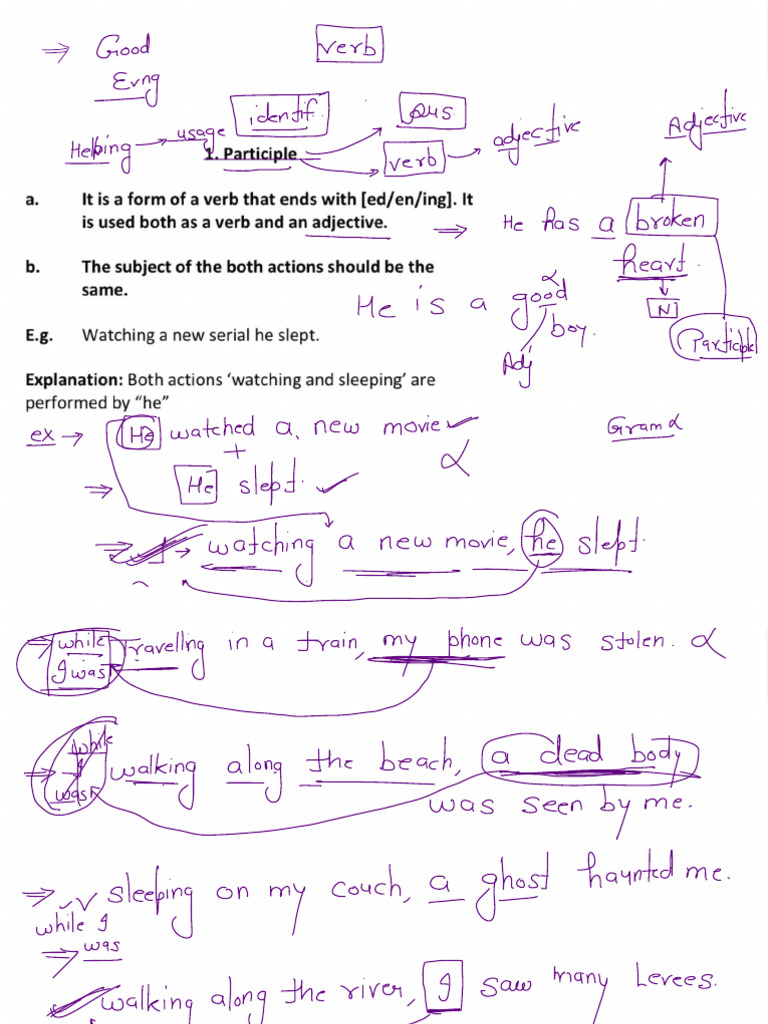 ⇒ Good verb
Evng
identif. ous.
Helping → usage → adjective Adjective
1. Participle verb
a. It is a form of a verb that ends with [ed/en/ing]. It
is used both as a verb and an adjective. ⇒ He has a broken
heart.
b. The subject of the both actions should be the
same. He is a good N
boy. Participle
E.g. Watching a new serial he slept.
Adj
Explanation: Both actions ‘watching and sleeping’ are
performed by “he”
ex → He watched a new movie ✓ Gram
+
⇒ He slept. ✓
⇒ → watching a new movie, he slept.
⇒ while Travellng in a train, my phone was stolen.
I was
while
⇒ I walking along the beach, a dead body
was was seen by me.
⇒ sleeping on my couch, a ghost haunted me.
while I
⇒ was
walking along the river, I saw many Levees.